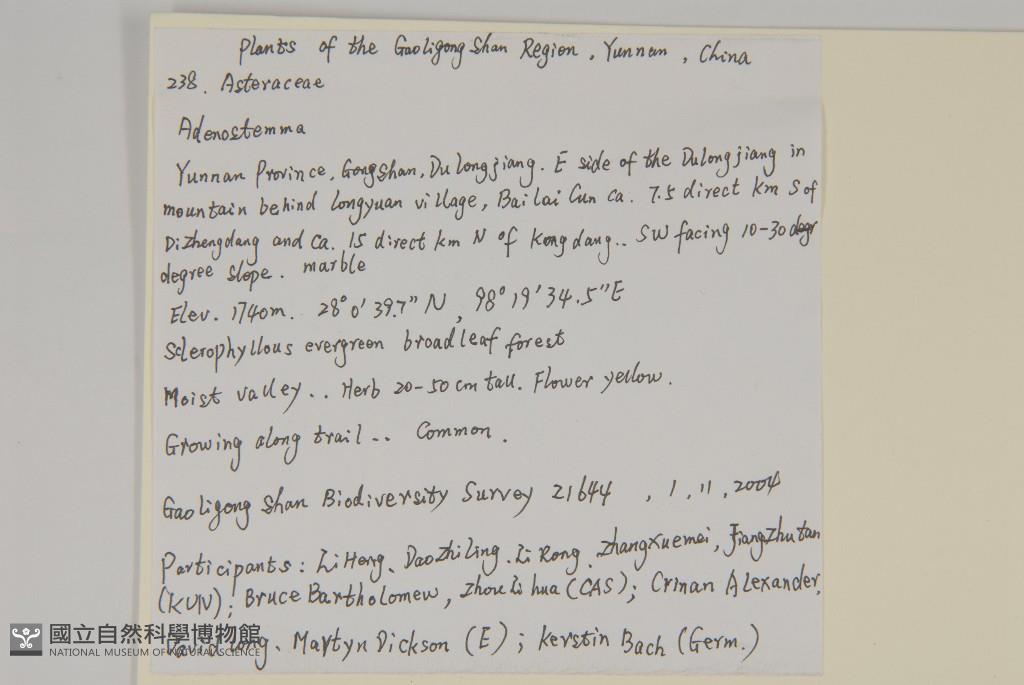 Plants of the Gaoligong Shan Region, Yunnan, China
238. Asteraceae
Adenostemma
Yunnan Province, Gongshan, Dulongjiang. E side of the Dulongjiang in
mountain behind Longyuan village, Bai lai Cun ca. 7.5 direct km S of
Dizhengdang and ca. 15 direct km N of Kongdang.. SW facing 10-30
degree slope. marble
Elev. 1740m. 28° 0' 39.7" N, 98° 19' 34.5" E
Sclerophyllous evergreen broadleaf forest
Moist valley.. Herb 20-50 cm tall. Flower yellow.
Growing along trail.. Common.
Gaoligong Shan Biodiversity Survey 21644 , 1, 11, 2004
Participants: Li Heng、Dao Zhiling、Li Rong、Zhang Xuemei, Jiang Zhutan
(KUN); Bruce Bartholomew, Zhou Lihua (CAS); Crinan Alexander,
Long、Martyn Dickson (E); Kerstin Bach (Germ.)
國立自然科學博物館
NATIONAL MUSEUM OF NATURAL SCIENCE